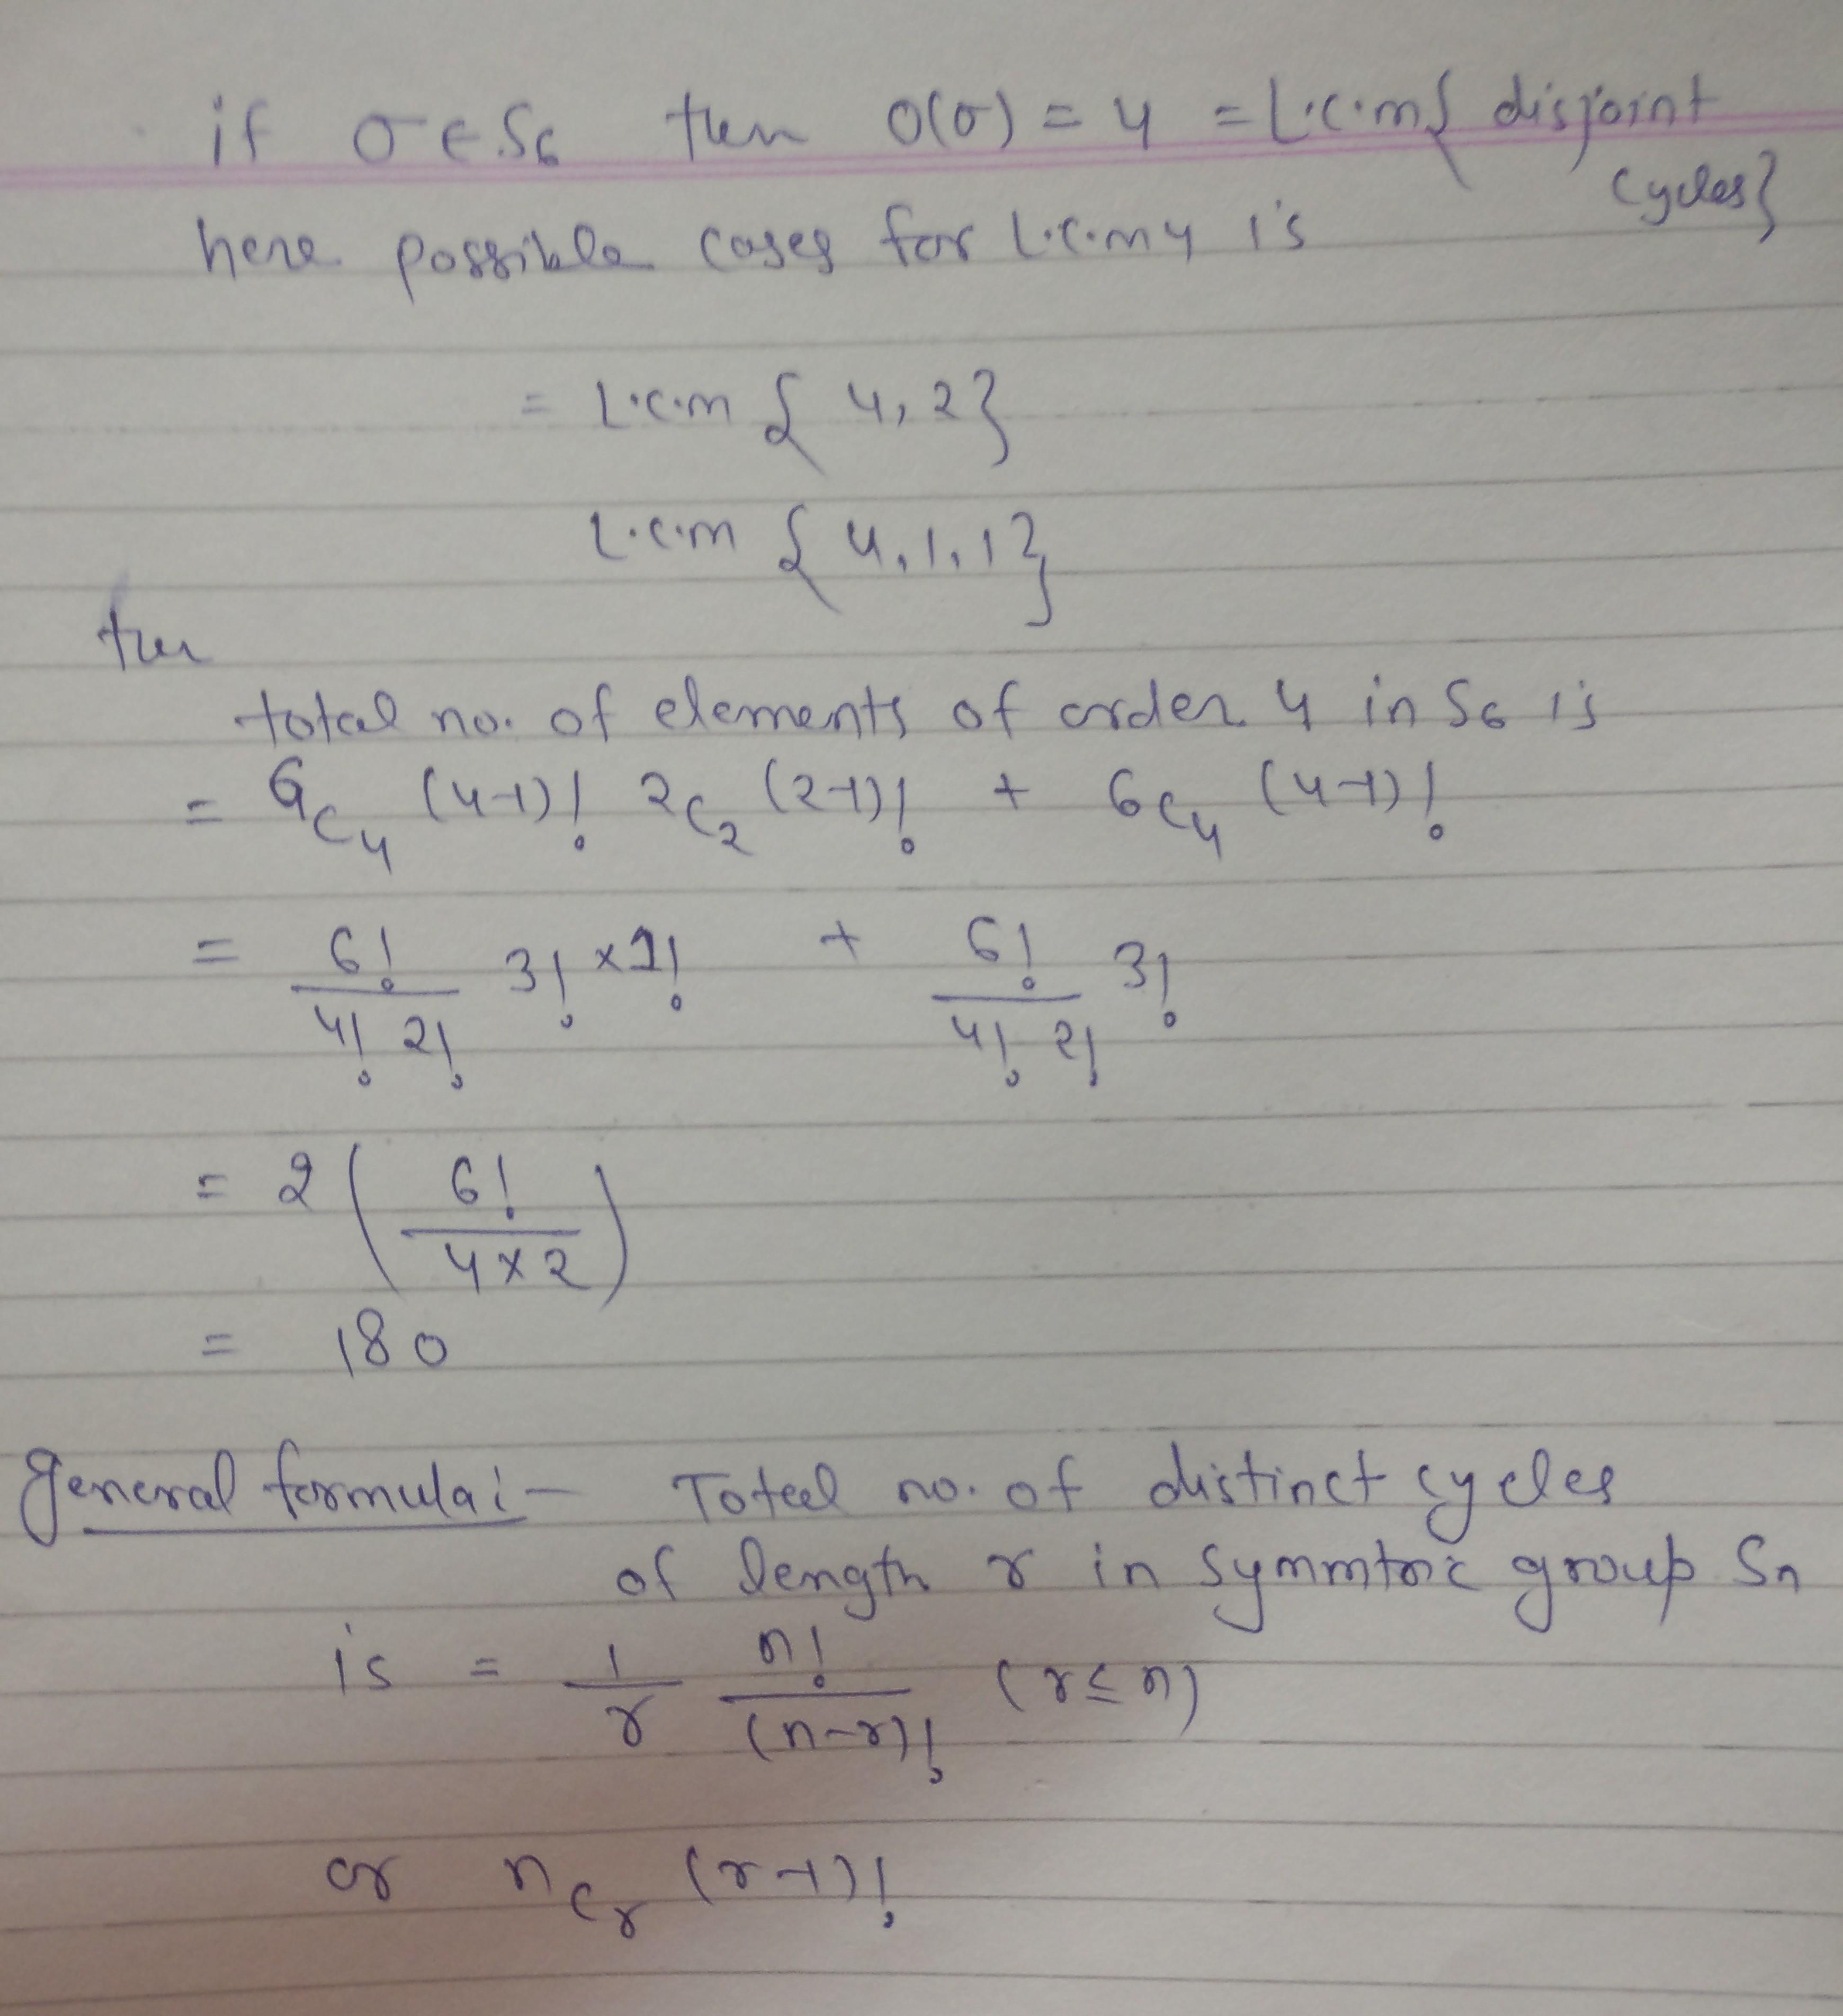 if σ ∈ S₆ then O(σ) = 4 = L.C.M{ disjoint
cycles}
here possible cases for L.C.M 4 is
= L.C.M { 4, 2}
L.C.M { 4, 1, 1}
then
total no. of elements of order 4 in S₆ is
= 6C₄ (4-1)! 2C₂ (2-1)! + 6C₄ (4-1)!
= 6!/(4! 2!) 3! × 1! + 6!/(4! 2!) 3!
= 2 ( 6!/(4×2) )
= 180
general formula:- Total no. of distinct cycles
of length r in symmtric group Sn
is = 1/r n!/(n-r)! (r ≤ n)
or nCr (r-1)!